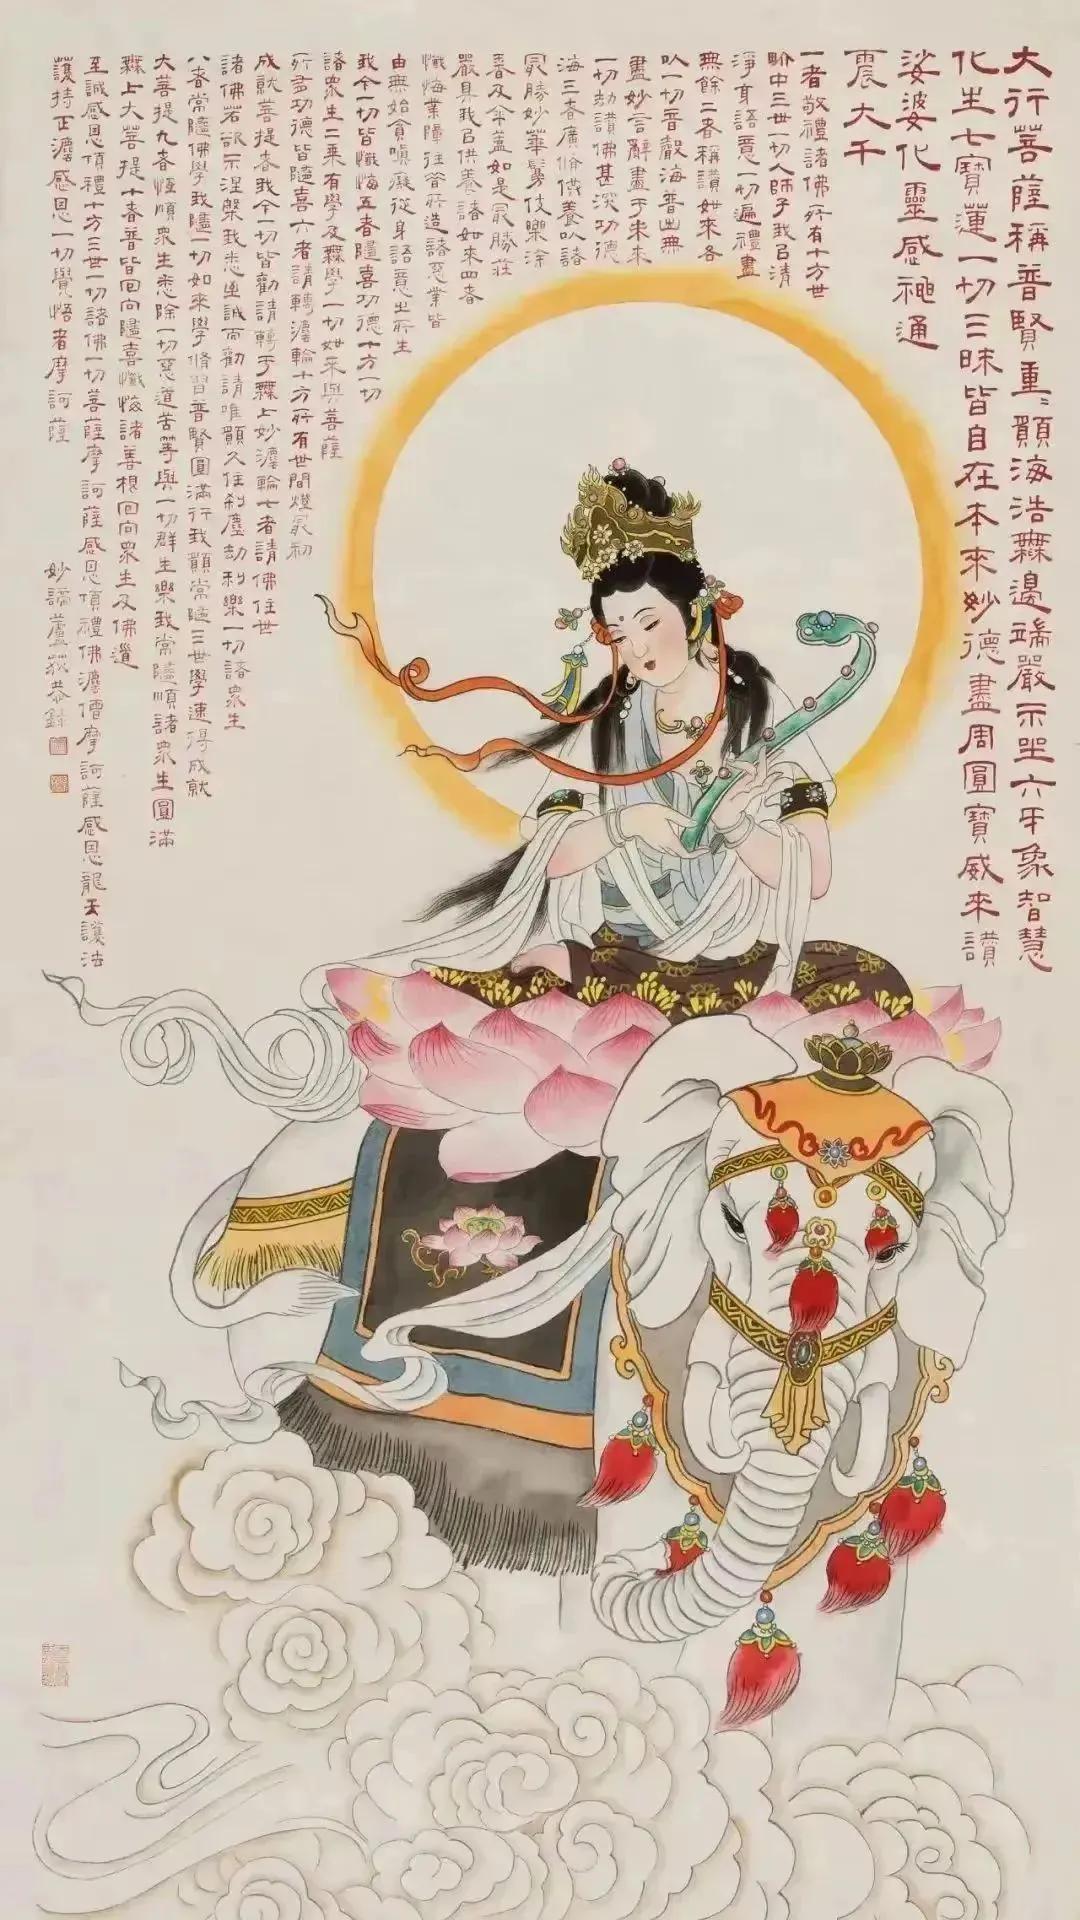 大行菩薩稱普賢重〻願海浩無邊端嚴示坐六牙象智慧
化生七寶蓮一切三昧皆自在本來妙德盡周圓寶威來讚
娑婆化靈感神通
震大千
一者敬禮諸佛所有十方世
界中三世一切人師子我以清
淨身語意一切遍禮盡
無餘二者稱讚如來各
以一切音嚴海普出無
盡妙言辭盡于未來
一切劫讚佛甚深功德
海三者廣脩供養以諸
最勝妙華鬘伎樂涂
香及傘蓋如是最勝莊
嚴具我以供養諸如來四者
懺悔業障往昔所造諸惡業皆
由無始貪嗔癡從身語意生所生
我今一切皆懺悔五者隨喜功德十方一切
諸眾生二乘有學及無學一切如來與菩薩
所多功德皆隨喜六者請轉法輪十方所有世間燈最初
成就菩提者我今一切皆勸請轉于無上妙法輪七者請佛住世
諸佛若欲示涅槃我悉至誠而勸請唯願久住剎塵劫利樂一切諸眾生
八者常隨佛學我隨一切如來學脩習普賢圓滿行我願常隨三世學速得成就
大菩提九者恆順眾生悉除一切惡道苦等與一切群生樂我常隨順諸眾生圓滿
無上大菩提十者普皆回向隨喜懺悔諸善根回向眾生及佛道
至誠感恩頂禮十方三世一切諸佛一切菩薩摩訶薩感恩頂禮佛法僧摩訶薩感恩龍天護法
護持正法感恩一切覺悟者摩訶薩
妙諦蘆荻恭錄